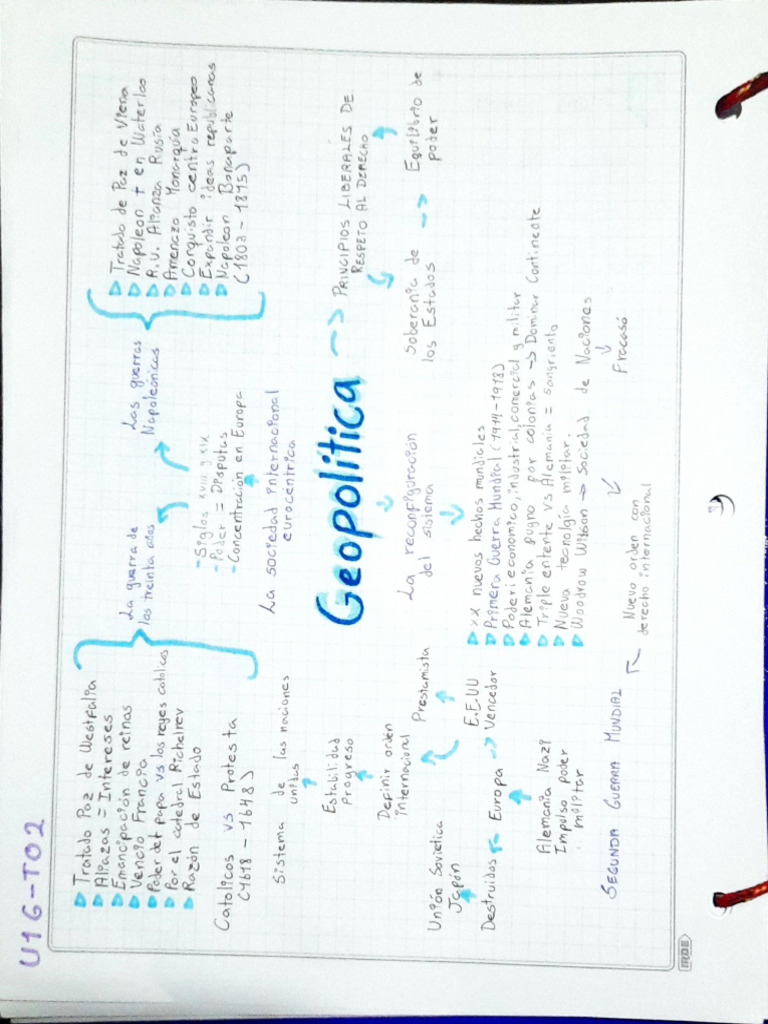 U1G-T02
Tratado Paz de Westfalia
Alianzas = Intereses
Emancipación de reinas
Venció Francia
Poder del papa vs los reyes catolicos
Por el catedral Richelrev
Razón de Estado
Catolicos vs Protesta
(1618 - 1648)
La guerra de
los treinta años
Las guerras
Napoleónicas
Tratado de Paz de Viena
Napoleon † en Waterloo
R.U. Alianza Rusia
Amenazo Monarquía
Conquisto centro Europeo
Expandir ideas republicanas
Napoleon Bonaparte
(1803 - 1815)
- Siglos XVIII y XIX
- Poder = Disputas
- Concentración en Europa
La sociedad internacional
eurocéntrica
Geopolítica
PRINCIPIOS LIBERALES DE
RESPETO AL DERECHO
Soberania de
los Estados
Equilibrio de
poder
La reconfiguración
del sistema
XX nuevos hechos mundiales
Primera Guerra Mundial (1914-1918)
Poderi economico, industrial, comercial y militar
Alemania pugno por colonias → Dominar Continente
Triple entente vs Alemania = sangriento
Nueva tecnolgia militar.
Woodrow Wilson → Sociedad de Naciones
Fracasó
Nuevo orden con
derecho internacional
SEGUNDA GUERRA MUNDIAL
Alemania Nazi
Impulso poder
militar
Destruidos
Europa
E.E.U.U
Vencedor
Unión Sovietica
Japón
Prestamista
Definir orden
internacional
Estabilidad
progreso
Sistema de las naciones
unidas
IRDE